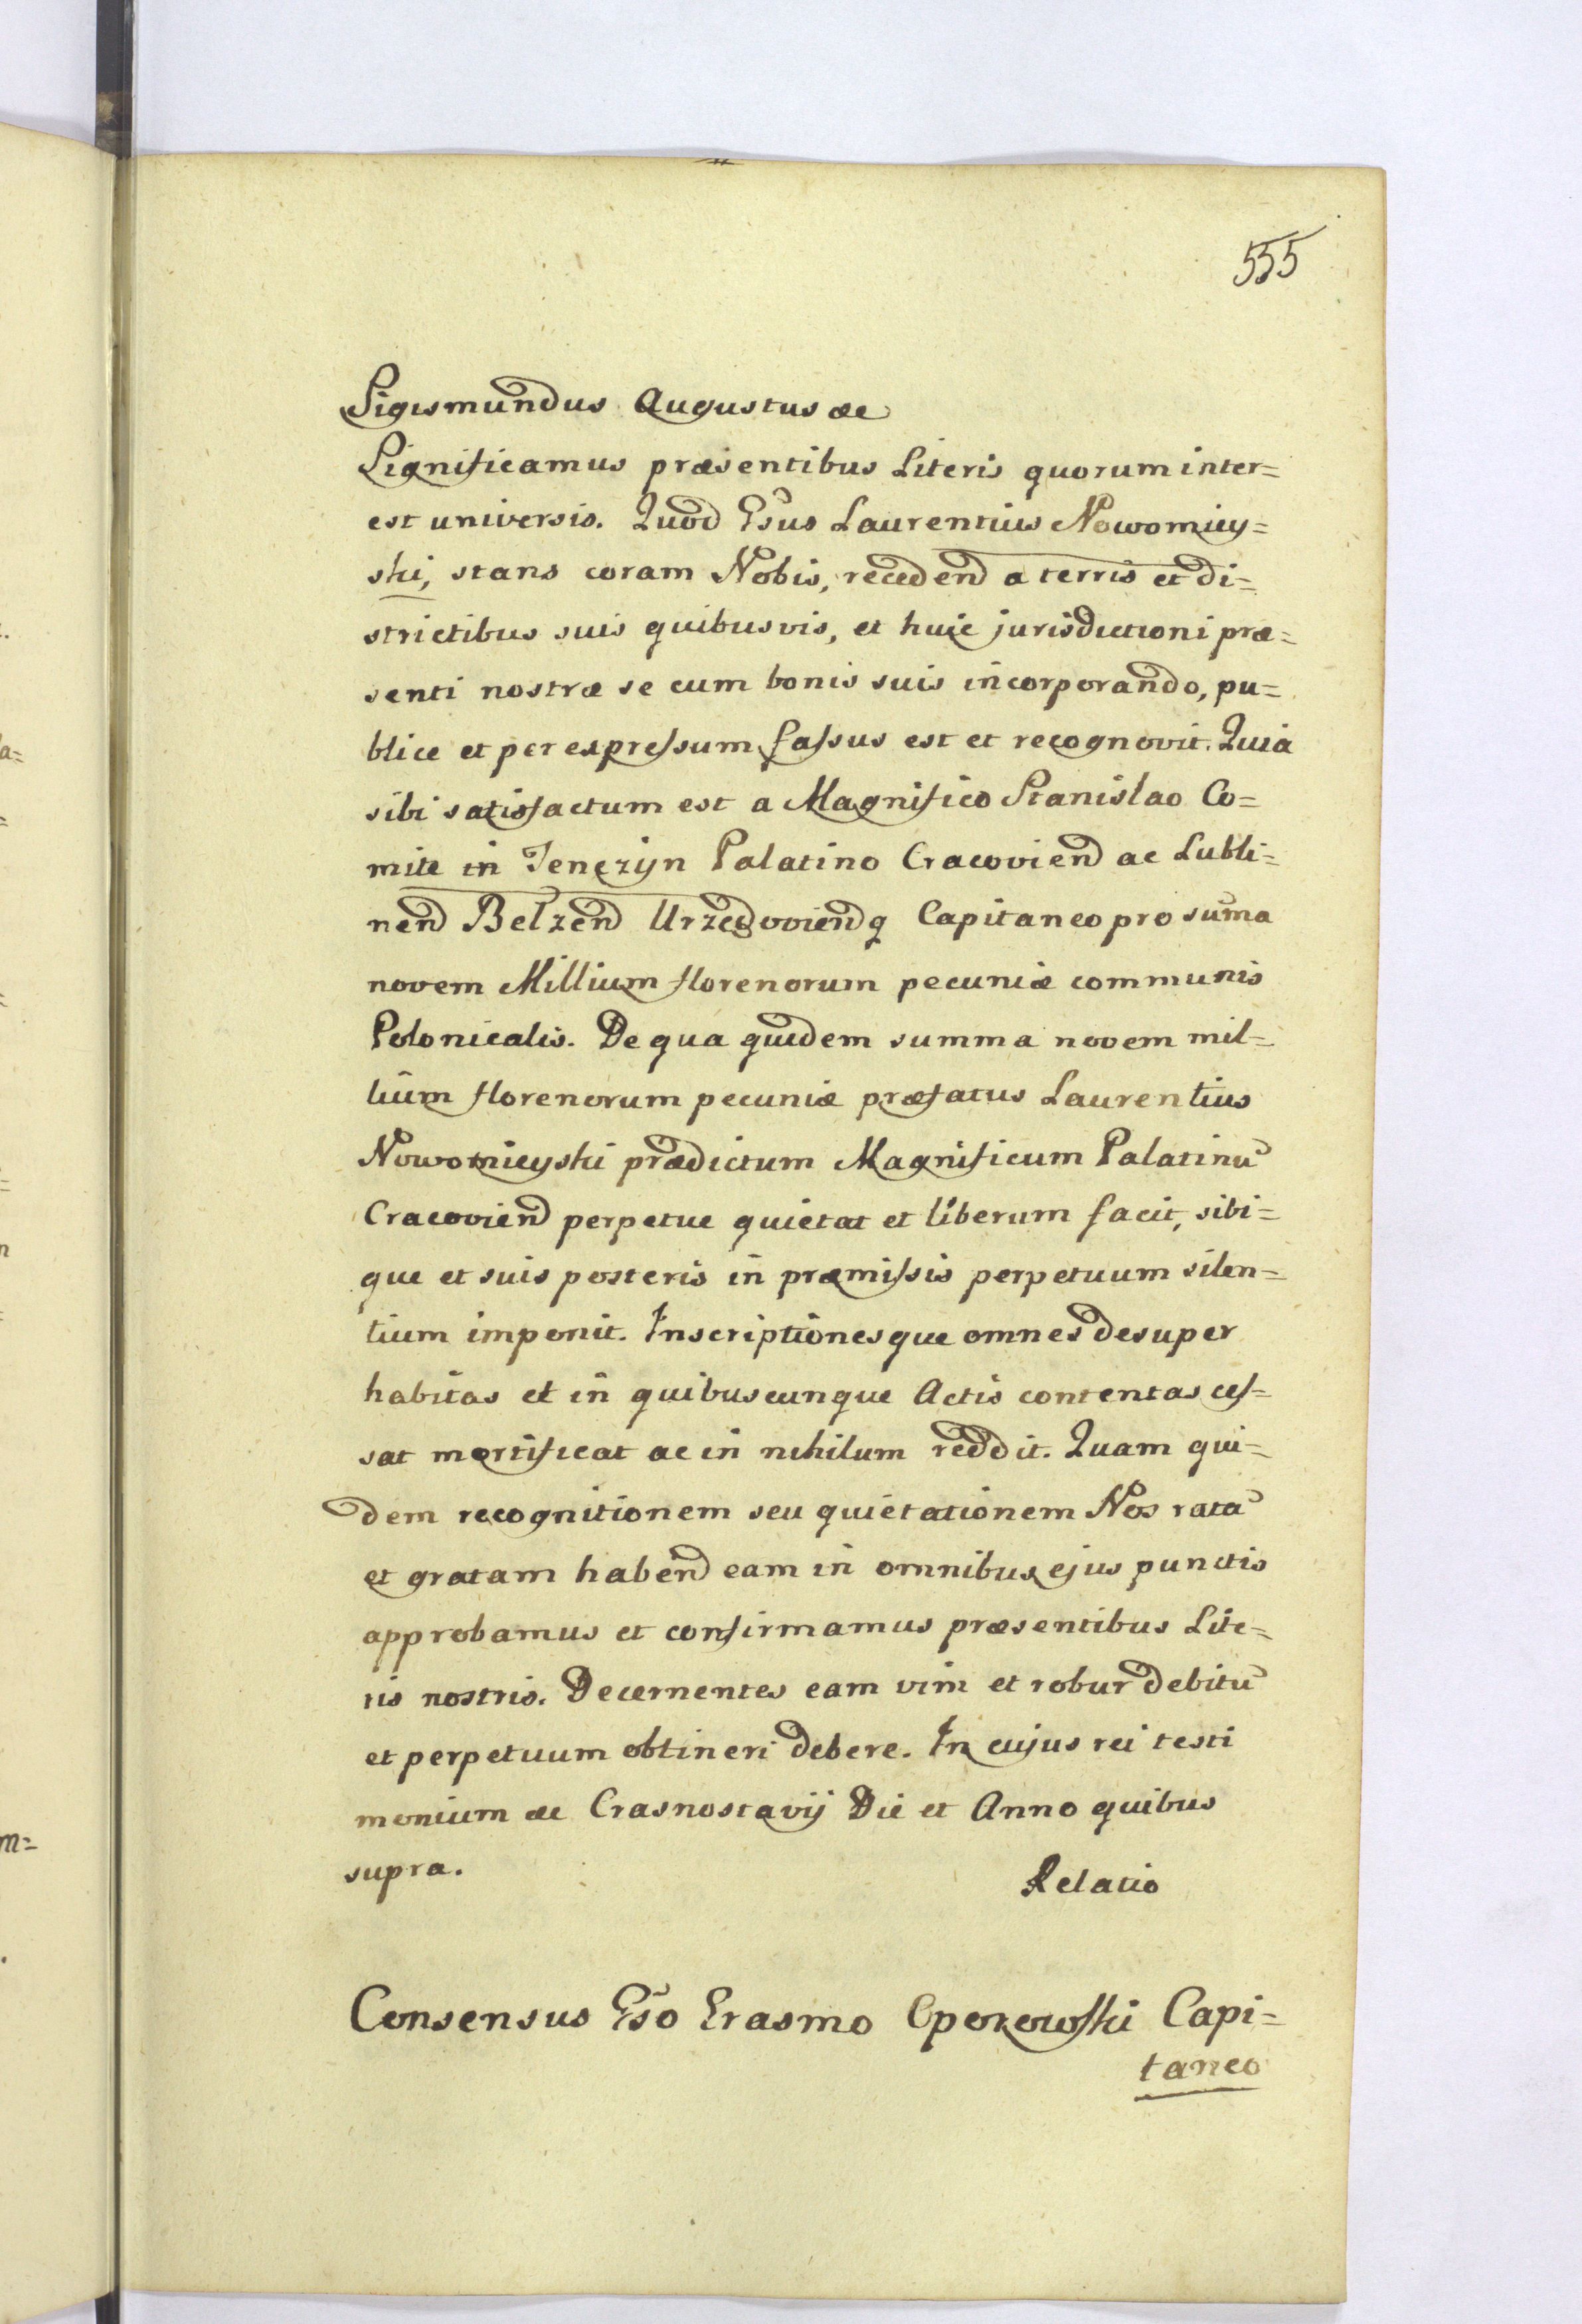 555
Sigismundus Augustus &c
Significamus præsentibus Literis quorum inter=
est universis. Quod Gsus Laurentius Nowomiey=
ski, stans coram Nobis, recedend a terris et di=
strictibus suis quibusvis, et huic jurisdictioni præ=
senti nostræ se cum bonis suis incorporando, pu=
blice et per expreſsum faſsus est et recognovit. Quia
sibi satisfactum est a Magnifico Stanislao Co=
mite in Tenczyn Palatino Cracoviend ac Lubli=
nend Belzend Urzedoviendq Capitaneo pro sum̃a
novem Millium florenorum pecuniæ communis
Polonicalis. De qua quidem summa novem mil=
lium florenorum pecuniæ præfatus Laurentius
Nowomieyski prædictum Magnificum Palatinũ
Cracoviend perpetue quietat et liberum facit, sibi=
que et suis posteris in præmiſsis perpetuum silen=
tium imponit. Inscriptionesque omnes desuper
habitas et in quibuscunque Actis contentas ceſ=
sat mortificat ac in nihilum reddit. Quam qui=
dem recognitionem seu quietationem Nos ratã
et gratam habend eam in omnibus ejus punctis
approbamus et confirmamus præsentibus Lite=
ris nostris. Decernentes eam vim et robur debitũ
et perpetuum obtineri debere. In cujus rei testi
monium &c Crasnostavij Die et Anno quibus
supra.
Relatio
Consensus Gso Erasmo Oporowſki Capi=
taneo